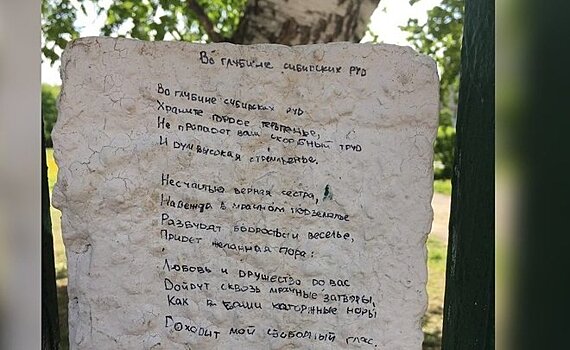 Во глубине сибирских руд
Во глубине сибирских руд
Храните гордое терпенье,
Не пропадет ваш скорбный труд
И дум высокая стремленье.
Несчастью верная сестра,
Надежда в мрачном подземелье
Разбудит бодрость и веселье,
Придет желанная пора:
Любовь и дружество до вас
Дойдут сквозь мрачные затворы,
Как в ваши каторжные норы
Доходит мой свободный глас.